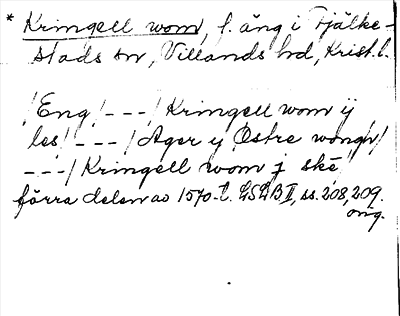 * Kringell wom, f. äng i Fjälke-
stads sn, Villands hd, Krist. l.
/Eng/ --- / Kringell wom ÿ
les/ --- / Ager y Østre wongh/
---/ Kringell wom j skē/
förra delen av 1570-t. LSLB II, ss. 208, 209.
orig.